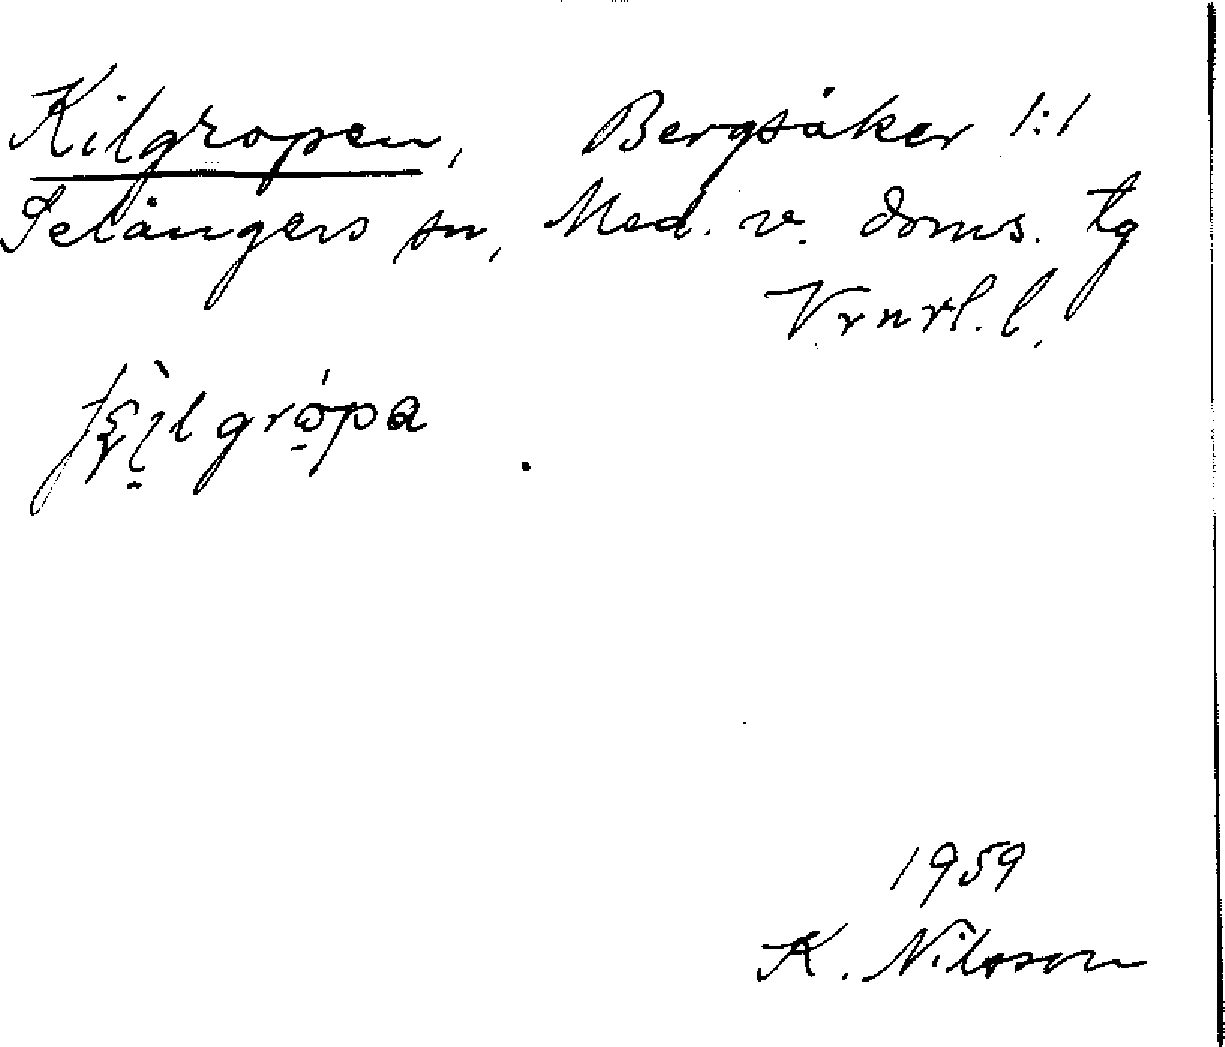 Kilgropen, Bergsåker 1:1
Selångers sn, Med. v. doms. tg
Vrnrl. l.
grópa
1959
K. Nilsson